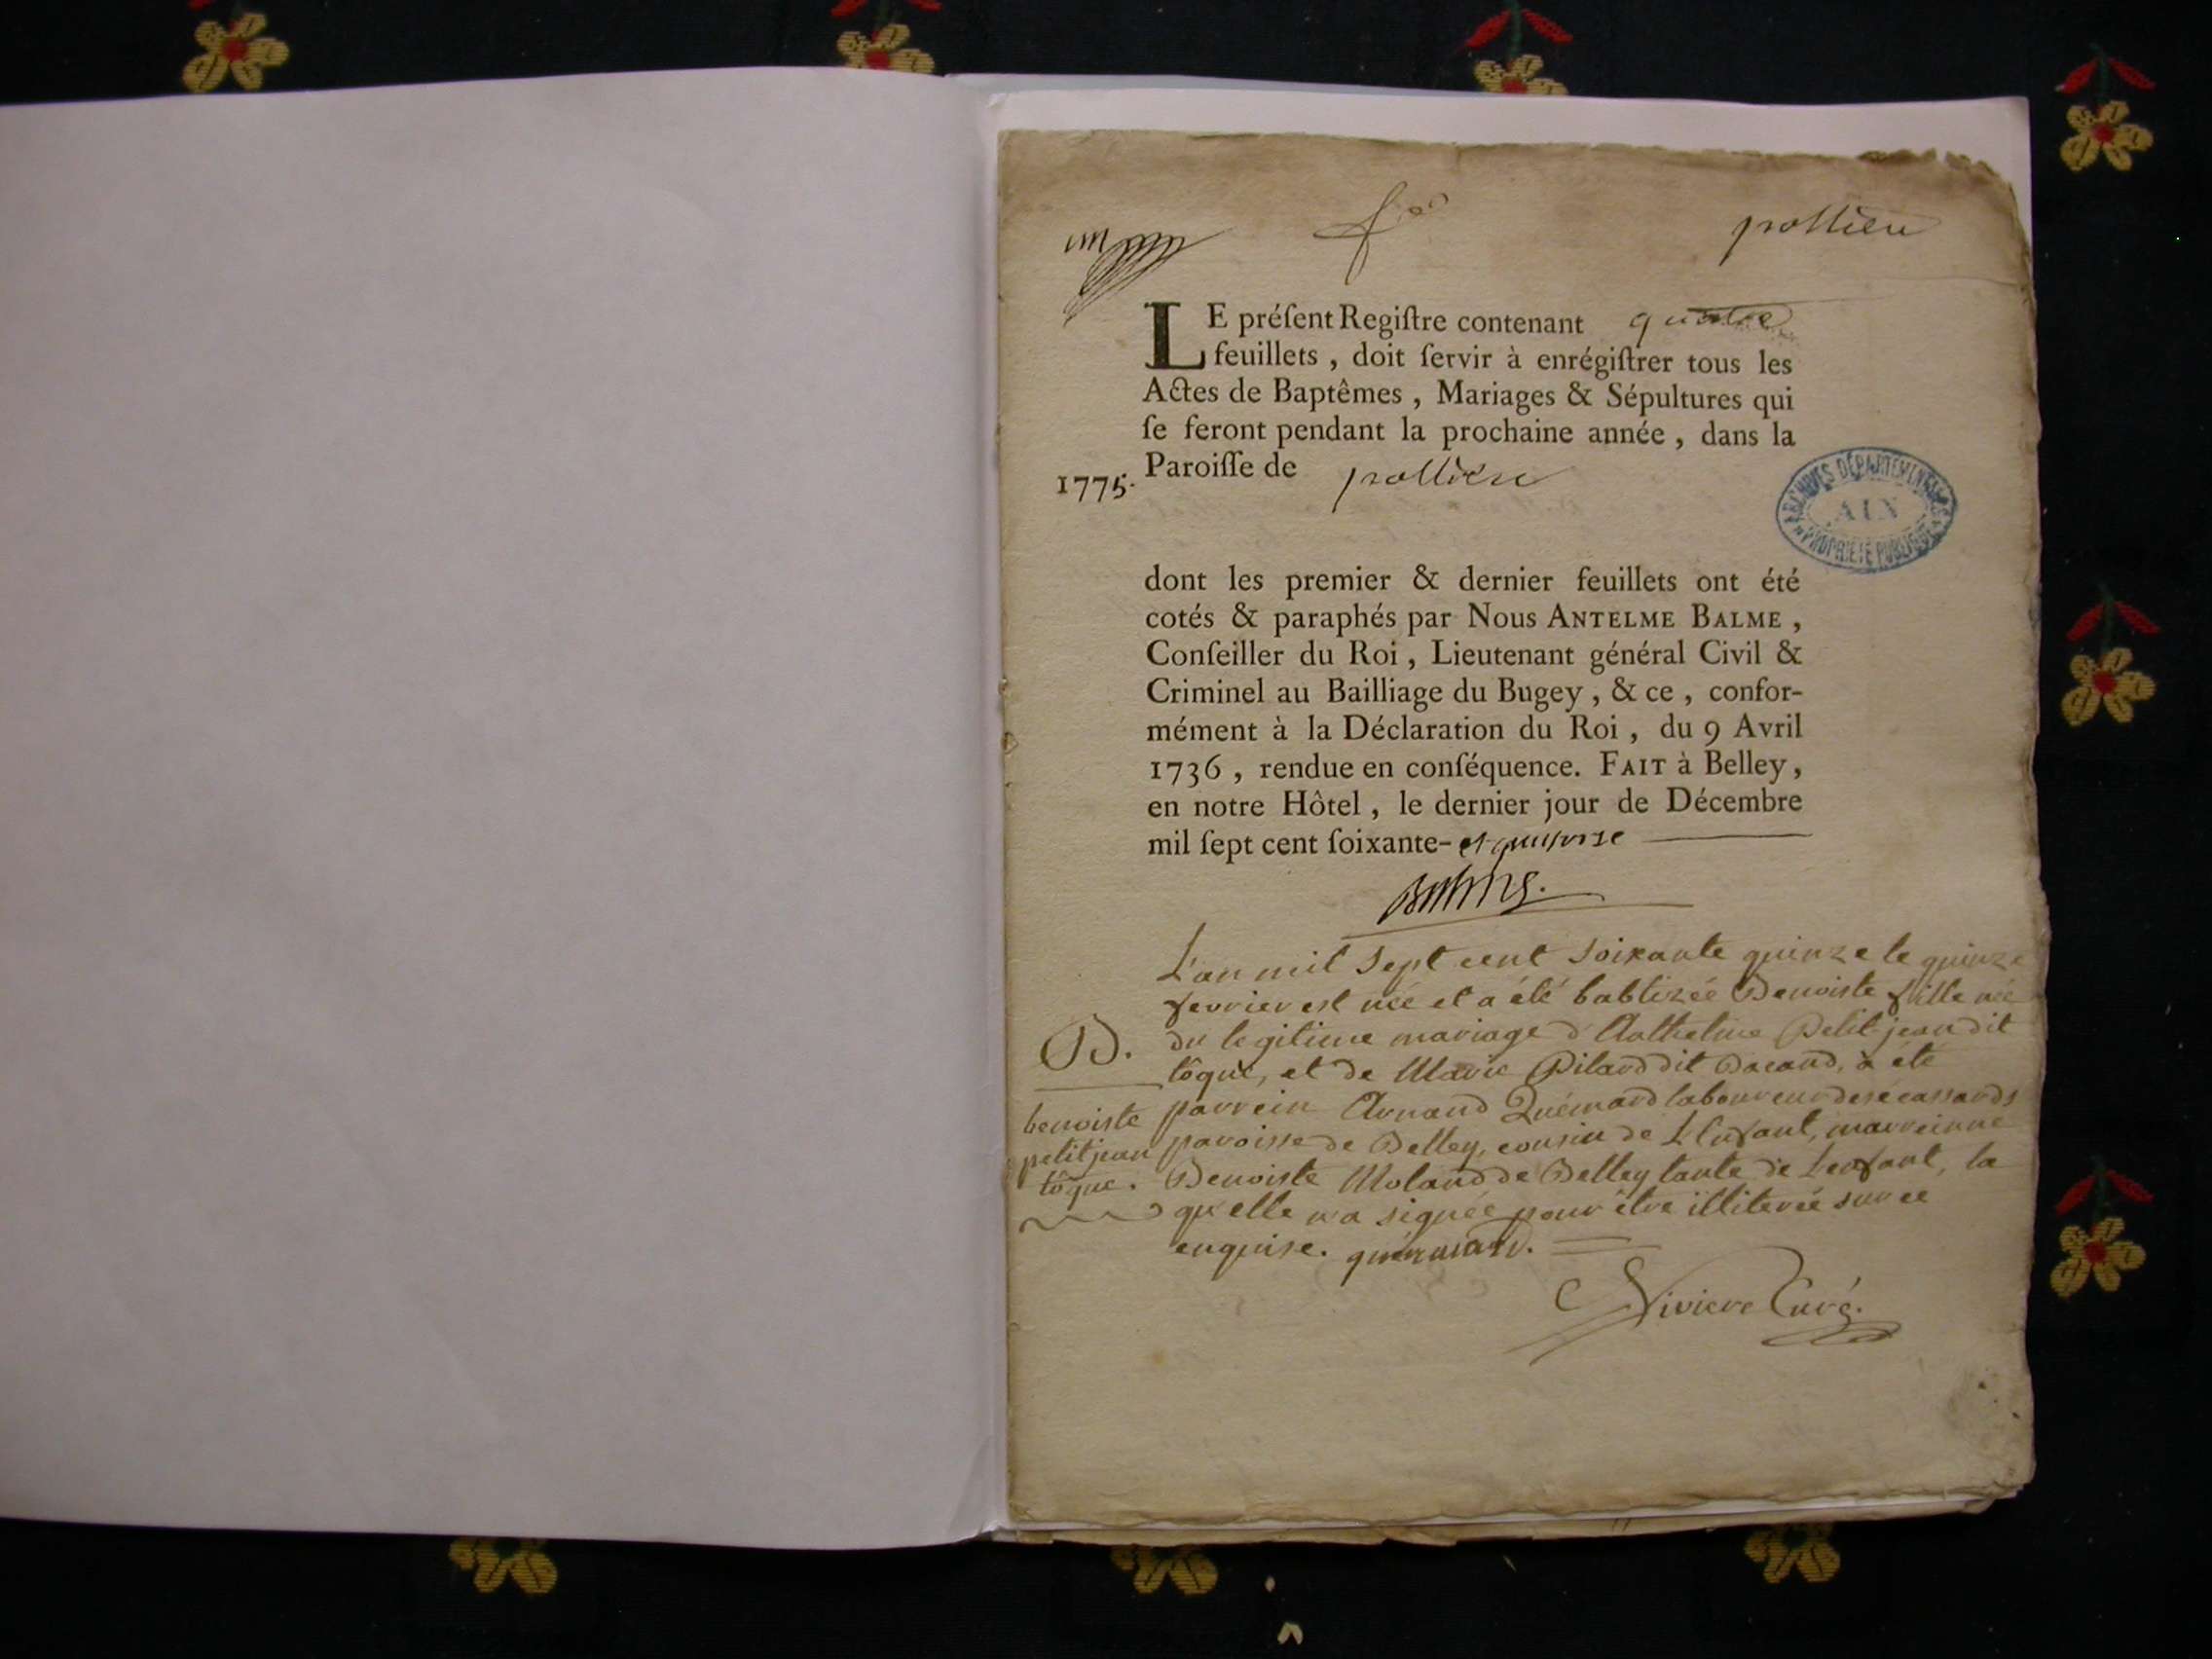 un
pollieu
LE préſent Regiſtre contenant quatre
feuillets , doit ſervir à enrégiſtrer tous les
Actes de Baptêmes , Mariages & Sépultures qui
ſe feront pendant la prochaine année , dans la
1775. Paroiſſe de pollieu
ARCHIVES DÉPARTEMENTALES
AIN
PROPRIÉTÉ PUBLIQUE
dont les premier & dernier feuillets ont été
cotés & paraphés par Nous ANTELME BALME ,
Conſeiller du Roi , Lieutenant général Civil &
Criminel au Bailliage du Bugey , & ce , confor-
mément à la Déclaration du Roi , du 9 Avril
1736 , rendue en conſéquence. FAIT à Belley ,
en notre Hôtel , le dernier jour de Décembre
mil ſept cent ſoixante- et quatorze
Balme.
L'an mil sept cent soixante quinze le quinze
fevrier est née et a été babtizée Benoiste fille née
B. du legitime mariage d'Anthelme Petit jean dit
tôque, et de Marie Pilard dit , a été
parrein Arnaud Quémard laboureur des écassards
paroisse de Belley, cousin de L'Enfant, marreinne
Benoiste Moland de Belley tante de L'enfant, la
qu'elle n'a signée pour être illiterée sur ce
enquise. quémard.
benoiste
petitjean
tôque.
Riviere Curé.